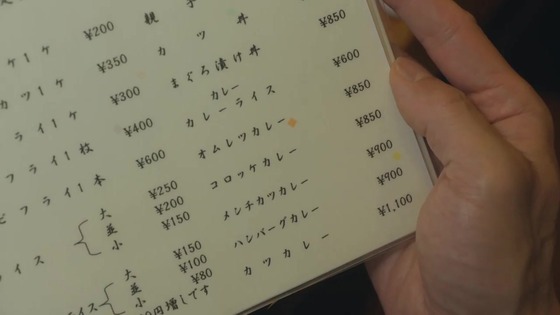 ケ1ケ ¥200
カツ1ケ ¥350
ライ1ケ ¥300
フライ1枚 ¥400
フライ1本 ¥600
大 ¥250
ライス 並 ¥200
小 ¥150
大 ¥150
イス 並 ¥100
小 ¥80
0円増しです
親子
カツ丼
まぐろ漬け丼 ¥850
カレー
カレーライス ¥600
オムレツカレー ¥850
コロッケカレー ¥850
メンチカツカレー ¥900
ハンバーグカレー ¥900
カツカレー ¥1,100